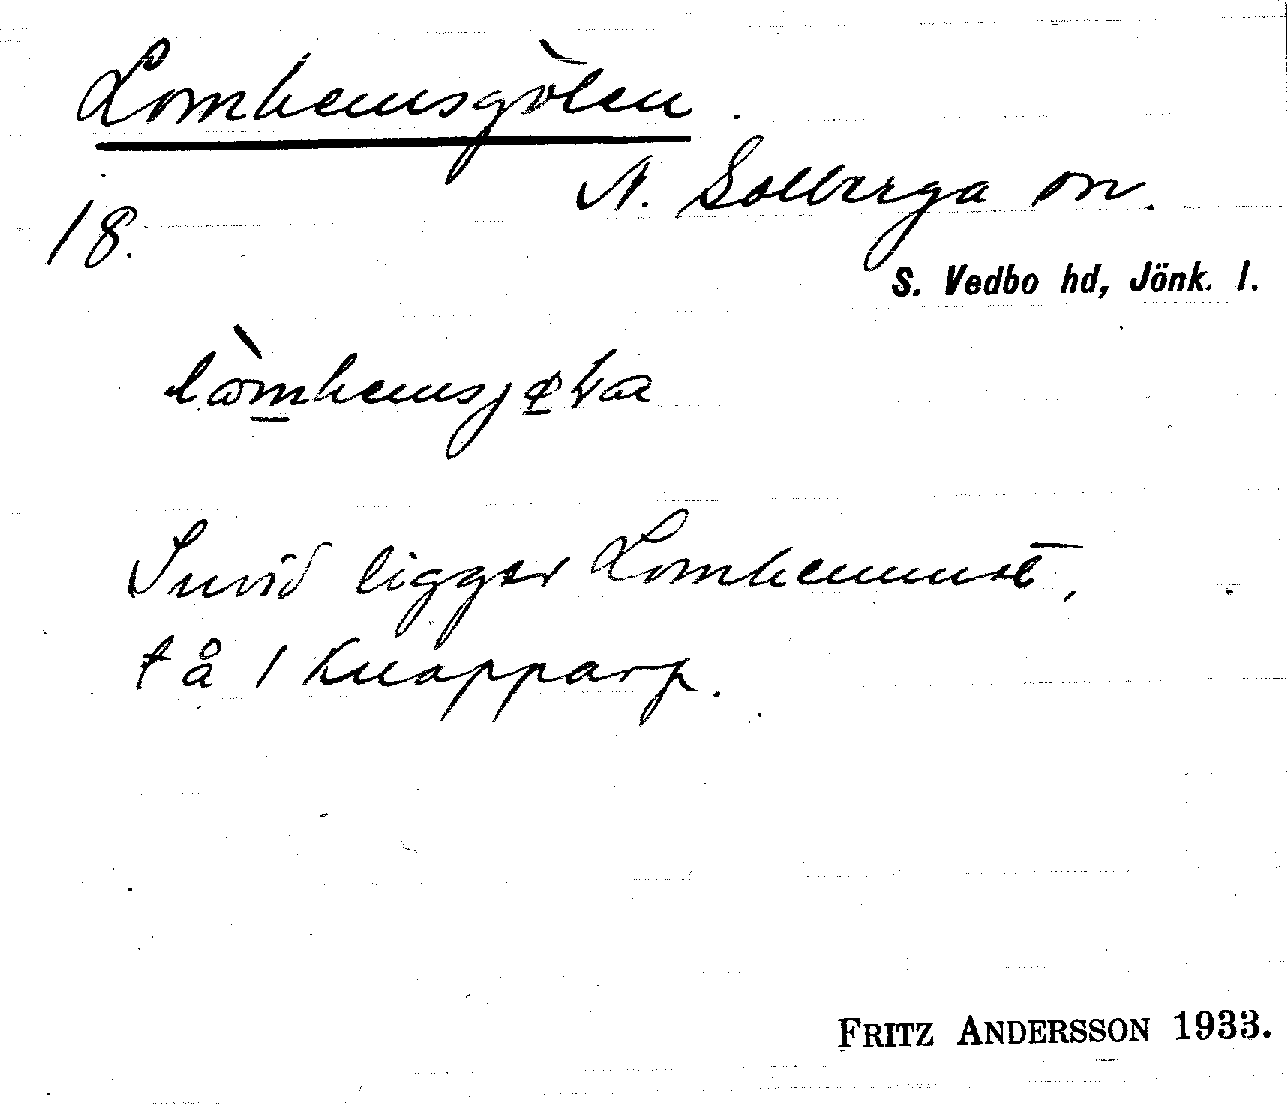 Lomhemsgölen.
N. Solberga sn.
18.
S. Vedbo hd, Jönk. l.
Invid ligger Lomhemmet,
tå / Knapparp.
FRITZ ANDERSSON 1933.